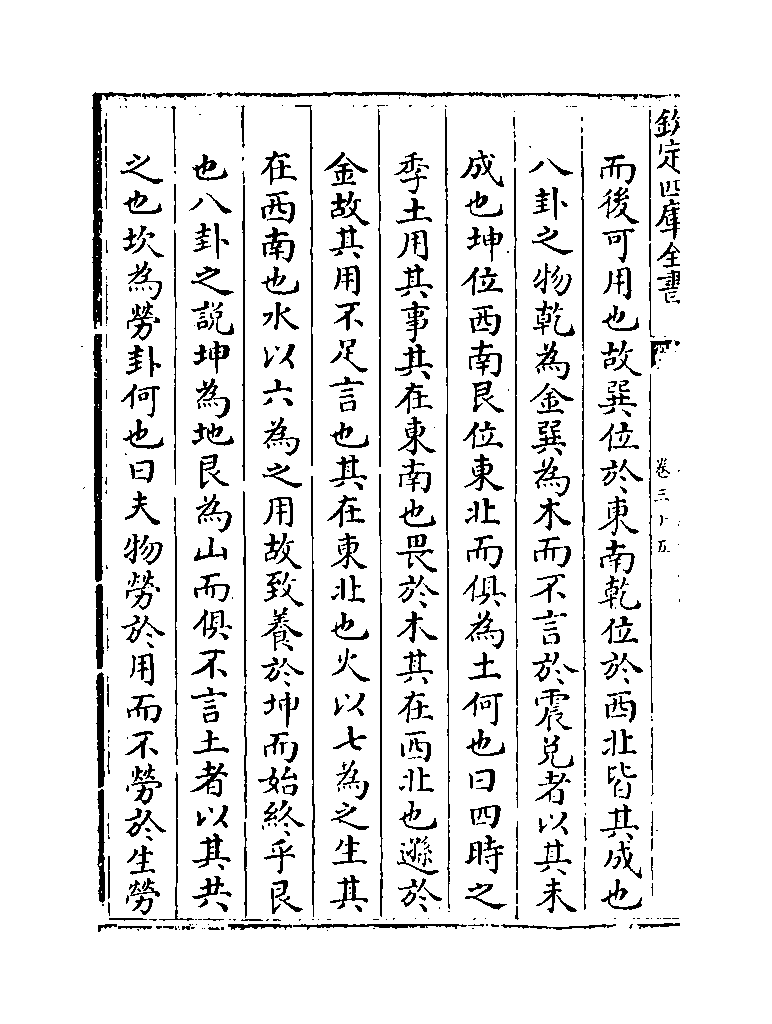 欽定四庫全書
卷三十五
而後可用也故巽位於東南乾位於西北皆其成也
八卦之物乾為金巽為木而不言於震兌者以其未
成也坤位西南艮位東北而俱為土何也曰四時之
季土用其事其在東南也畏於木其在西北也遜於
金故其用不足言也其在東北也火以七為之生其
在西南也水以六為之用故致養於坤而始終乎艮
也八卦之說坤為地艮為山而俱不言土者以其共
之也坎為勞卦何也曰夫物勞於用而不勞於生勞